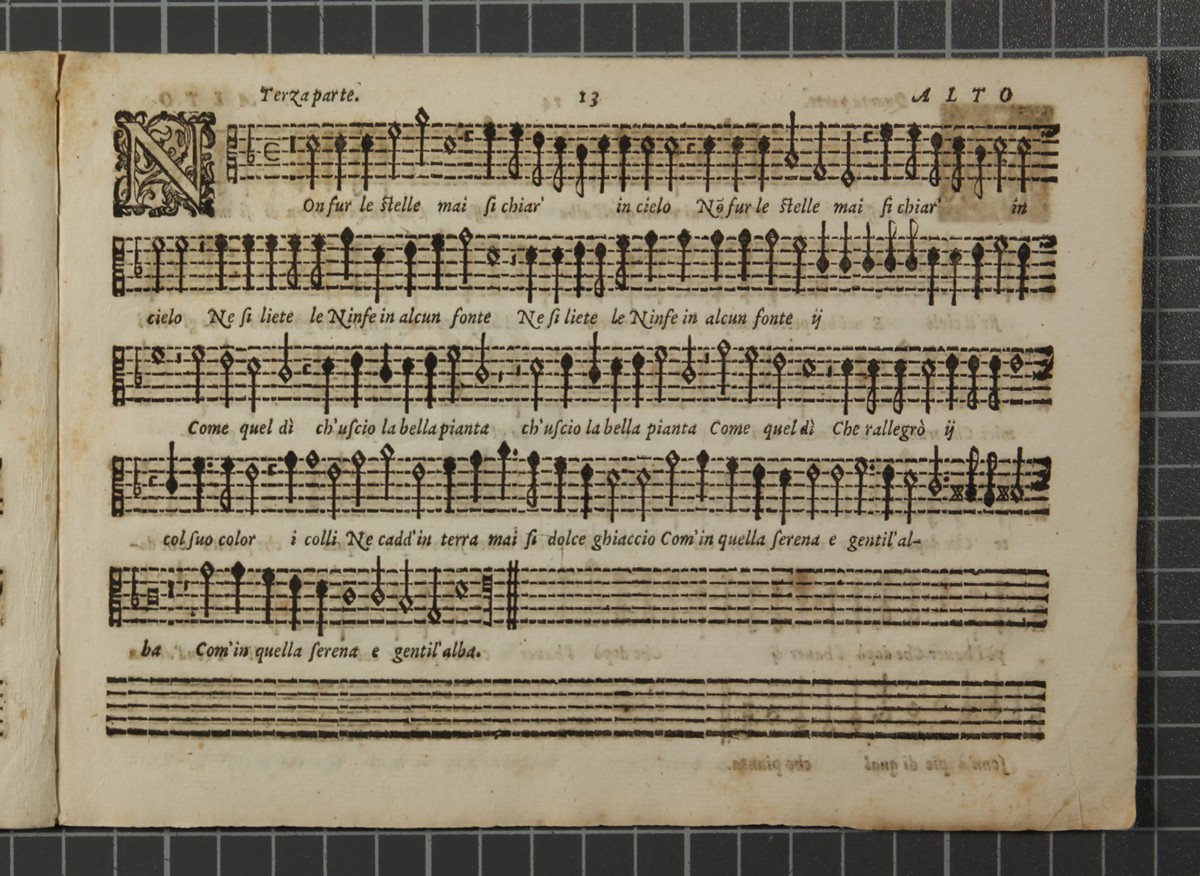 Terza parte. 13 ALTO
NOn fur le stelle mai si chiar' in cielo Nõ fur le stelle mai si chiar' in
cielo Ne si liete le Ninfe in alcun fonte Ne si liete le Ninfe in alcun fonte ij
Come quel dì ch'uscio la bella pianta ch'uscio la bella pianta Come quel dì Che rallegrò ij
col suo color i colli Ne cadd'in terra mai si dolce ghiaccio Com'in quella serena e gentil'al-
ba Com'in quella serena e gentil'alba.